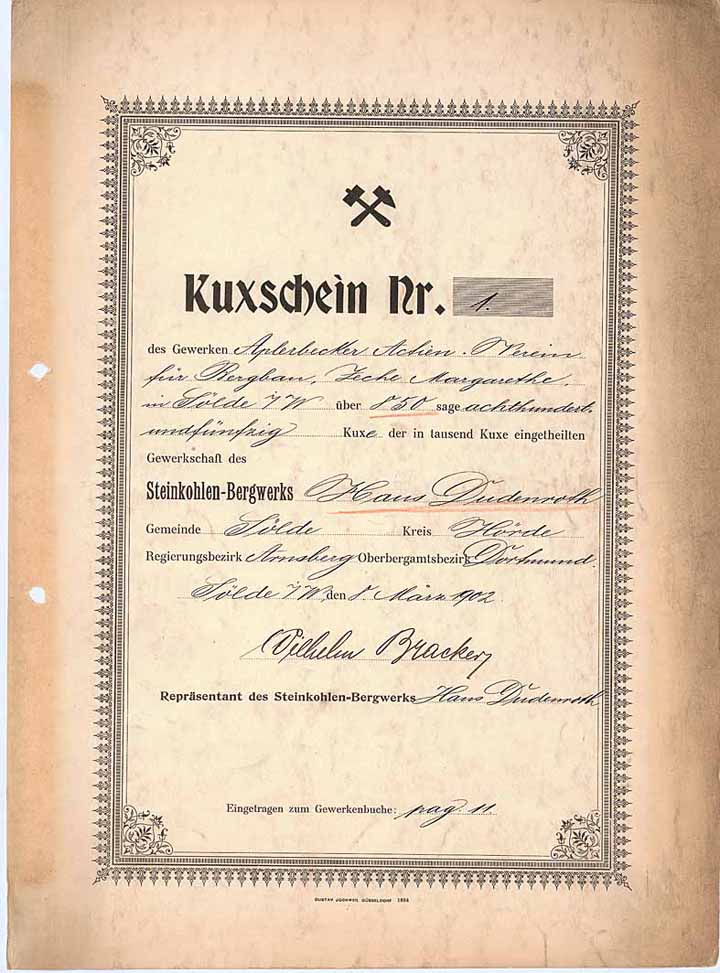 Kuxschein Nr. 1.
des Gewerken Aplerbecker Actien-Verein
für Bergbau, Zeche Margarethe,
in Sölde i/W über 850 sage achthundert-
undfünfzig Kuxe der in tausend Kuxe eingetheilten
Gewerkschaft des
Steinkohlen-Bergwerks Haus Dudenroth
Gemeinde Sölde Kreis Hörde
Regierungsbezirk Arnsberg Oberbergamtsbezirk Dortmund.
Sölde i/W, den 8. März 1902.
Wilhelm Bracker
Repräsentant des Steinkohlen-Bergwerks Haus Dudenroth
Eingetragen zum Gewerkenbuche: pag. 11.
GUSTAV DÜSSELDORF